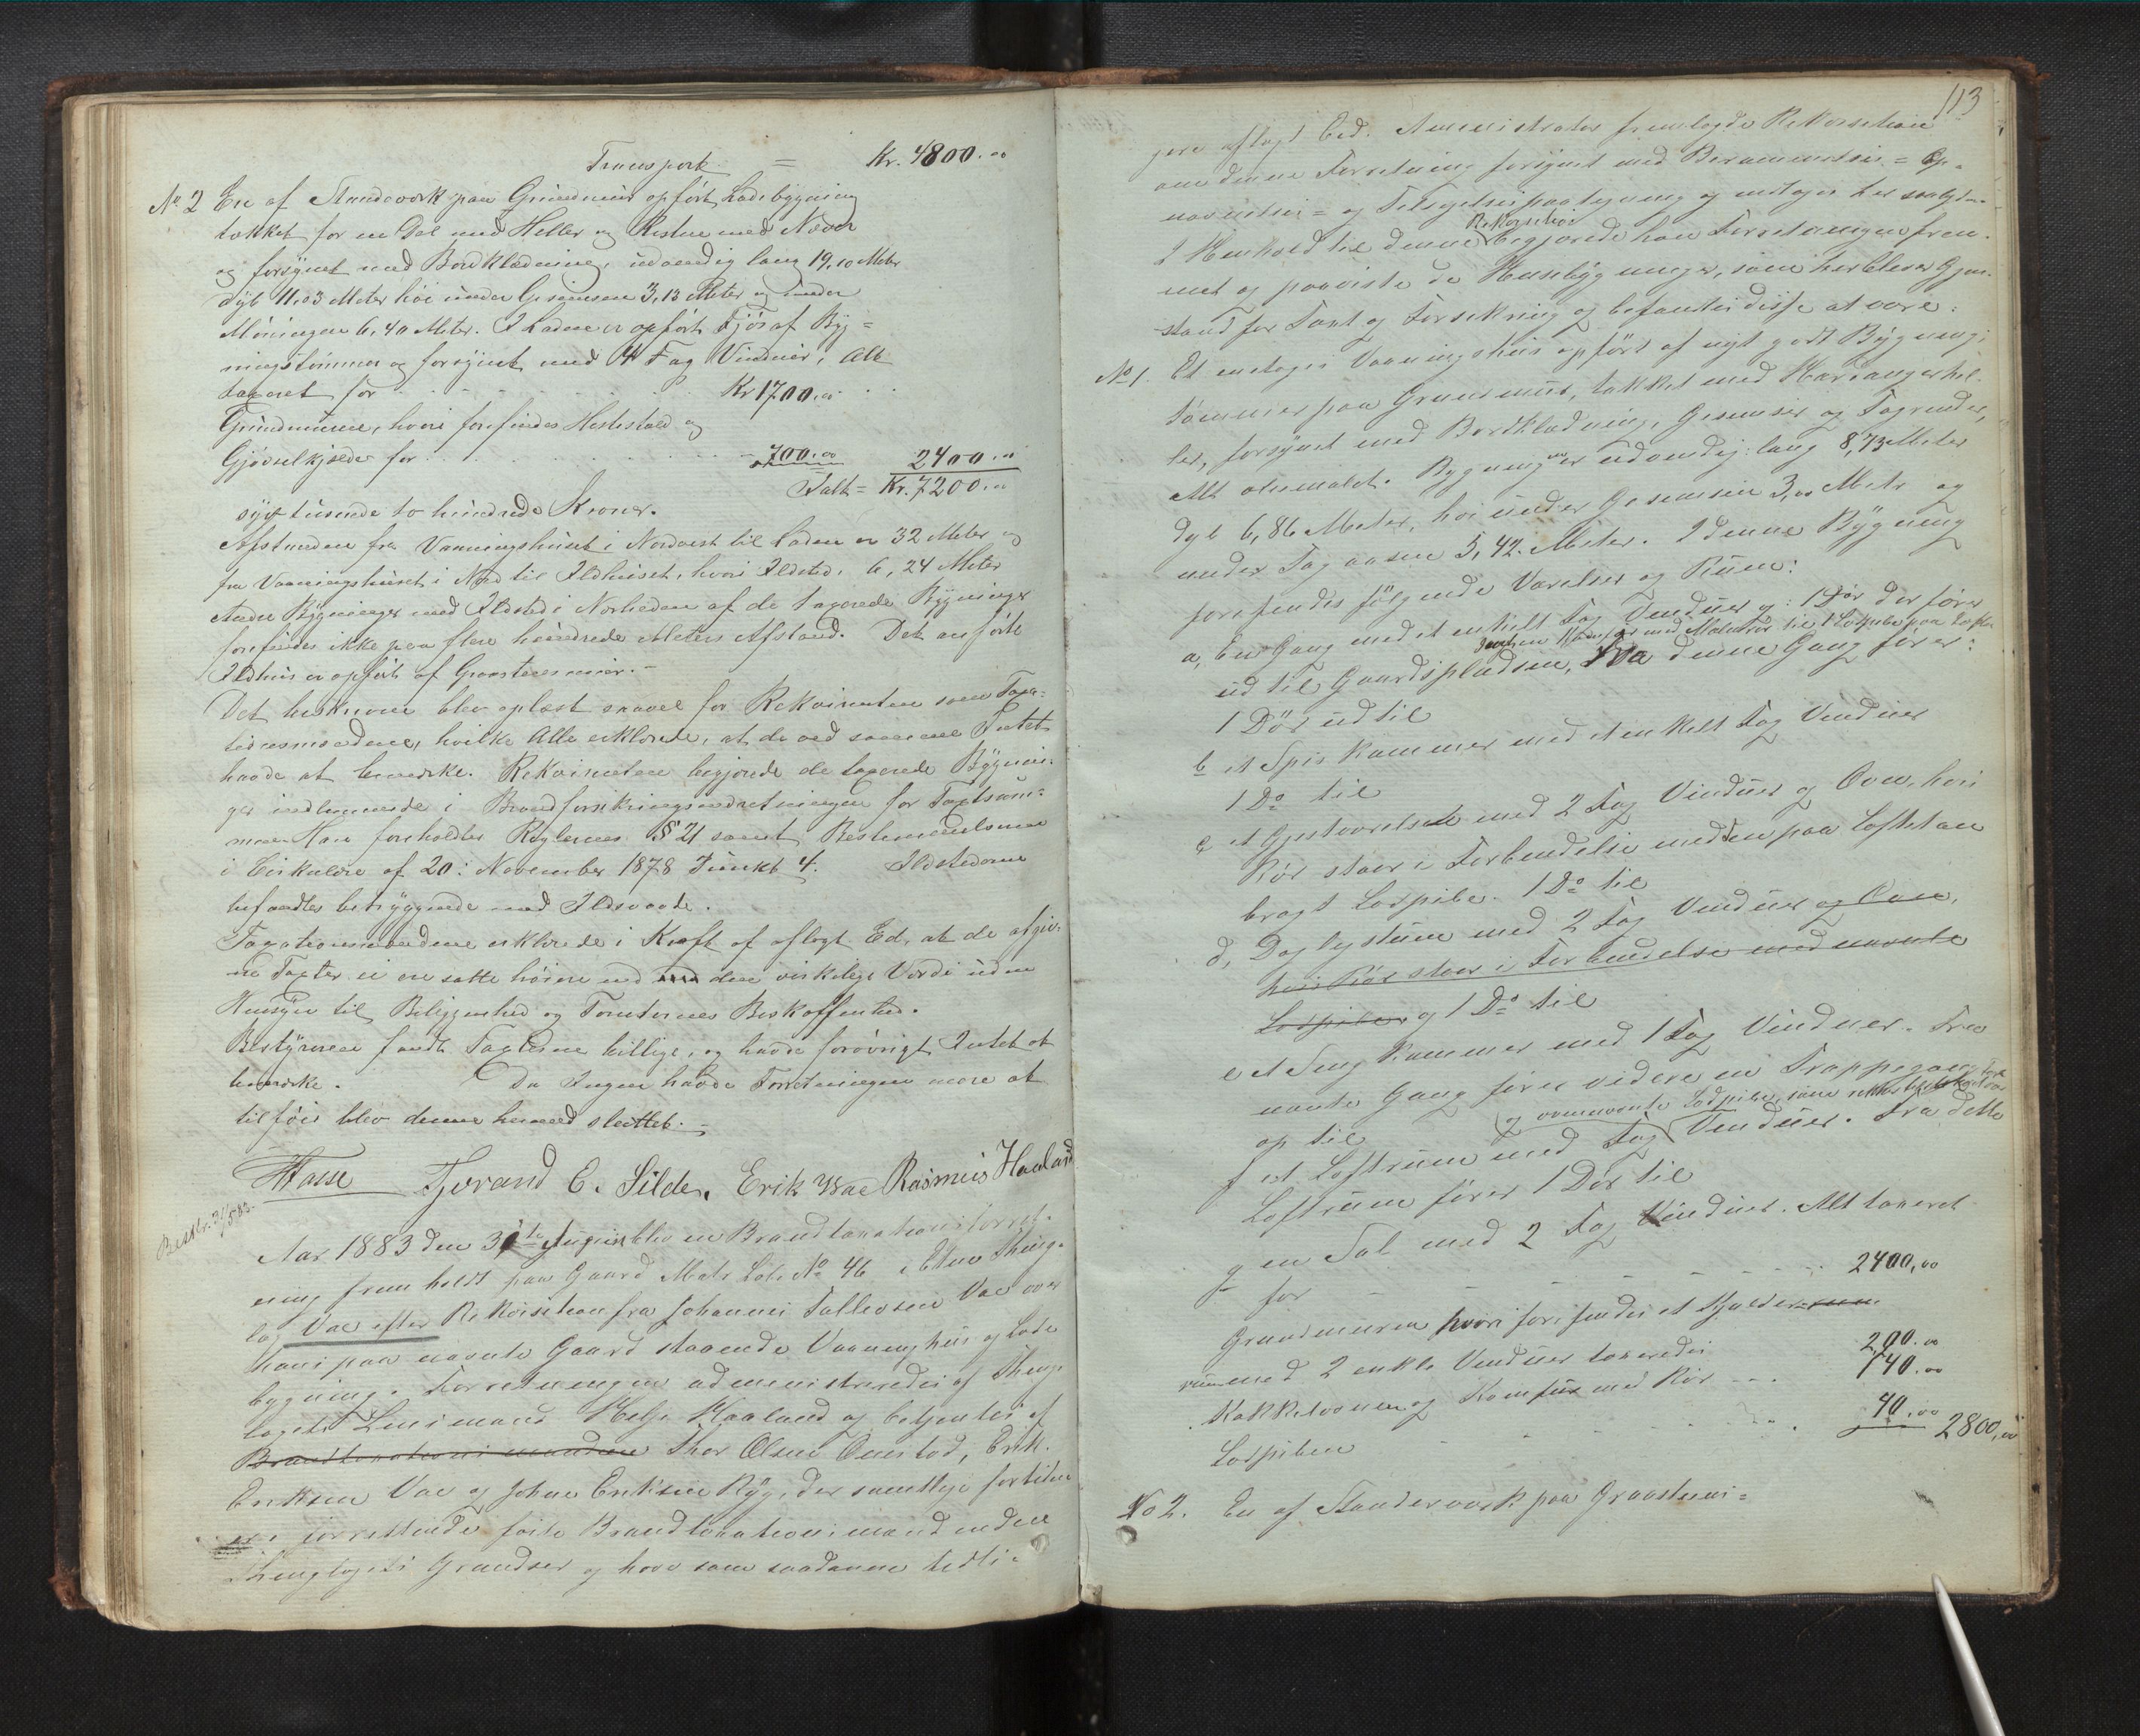 Transport = Kr. 4800.00
No 2 En af Standerværk paa Grundmur opfört Ladebygning
tækket for en Del med Heller og Resten med Næver
og forsynet med Bordklædning, udvendig lang 19,10 Meter
dyb 11,03 Meter höi under Gesimsen 3,13 Meter og under
Möningen 6,40 Meter. I Laden er opfört Fjös af Byg=
ningstömmer og forsynet med 4 Fag Vinduer, Alt
taxeret for Kr 1700.00
Grundmuren, hvori forefindes Hestestald og
Gjödselkjælder for 700.00 2400.00
Ialt = Kr. 7200.00
syv tusende to hundrede Kroner.
Afstanden fra Vaaningshuset i Nordvest til Laden er 32 Meter og
fra Vaaningshuset i Nord til Ildhuset, hvori Ildsted, 6,24 Meter
Andre Bygninger med Ildsted i Nærheden af de taxerede Bygninger
forefindes ikke paa flere hundrede Meters Afstand. Det anförte
Ildhus er opfört af Graasteensmur.-
Det beskrevne blev oplæst saavel for Rekvirenten som Taxa=
tionsmændene, hvilke Alle erklærede, at de ved samme Intet
havde at bemærke. Rekvirenten begjærede de taxerede Bygnin-
ger indlemmede i Brandforsikringsindretningen for Taxtsum=
men. Han foreholdtes Reglernes § 21 samt Bestemmelserne
i Cirkulære af 20: November 1878 Punkt 4. Ildstederne
befandtes betryggende mod Ildsvaade.
Taxationsmændene erklærede i Kraft af aflagt Ed, at de afgiv-
ne Taxter ei ere satte höiere end den virkelige Værdi uden
Hensyn til Beliggenhed og Tomternes Beskaffenhed.
Bestyreren fandt Taxterne billige, og havde forövrigt Intet at
bemærke. Da Ingen havde Forretningen mere at
tilföie blev denne hermed sluttet.-
Hasse Tjerand E. Silde. Erik Vae Rasmus Haaland
Aar 1883 den 31te August blev en Brandtaxationsforret-
ning fremholdt paa Gaard Matr Löb No 46 i Etne Thing-
lag Vae efter Rekvisition fra Johannes Tallevsen Vae over
hans paa nævnte Gaard staaende Vaaninghus og Lade
bygning. Forretningen administreredes af Thing-
lagets Lensmand Helje Haaland og betjentes af
Brandtaxationsmændene Thor Olsen Ønstad, Erik
Eriksen Vae og Johan Eriksen Ryg, der samtlige fortiden
ere forrettende faste Brandtaxationsmænd inden
Thinglagets Grændser og have som saadanne tidli-
113
gere aflagt Ed. Administrator fremlagde Rekvisition
om denne Forretning forsynet med Berammelses= Op-
nævnelses= og Tilsigelsespaategning og indtages her saalyde-
I Henhold til denne Rekvisition begjærede han Forretningen frem-
met og paaviste de Husebygninger, som her bleve Gjen-
stand for Taxt og Forsikring og befandtes disse at være:
No 1. Et enetages Vaaningshus opfört af nyt godt Bygnings
tömmer paa Grundmur, tækket med Hardangerhel-
ler, forsynet med Bordklædning, Gesimser og Tagrender,
Alt oliemalet. Bygningen er udvendig: lang 8,73 Meter
dyb 6,86 Meter, höi under Gesimsen 3,00 Meter og
under Tagaasen 5,42 Meter. I denne Bygning
forefindes fölgende Værelser og Rum:
a, En Gang med et enkelt Fag Vinduer og 1 Dör der förer
ud til Gaardspladsen, Fra denne Gang förer:
1 Dör ud til
b et Spiskammer med et enkelt Fag Vinduer
1 Do til
c et Gjestværelse med 2 Fag Vinduer og Ovn, hvis
Rör staar i Forbindelse med den paa Loftet an
bragt Lodpibe. 1 Do til
d, Dagligstue med 2 Fag Vinduer og Ovn,
hvis Rör staar i Forbindelse med nævnte
Lodpibe og 1 Do til
e et Sengkammer med 1 Fag Vinduer. Fra
nævnte Gang förer videre en Trappegang
op til
f et Loftrum med Fag Vinduer. Fra dette
Loftrum förer 1 Dör til
g en Sal med 2 Fag Vinduer. Alt taxeret
for 2400,00
Grundmuren hvori forefindes et Kjælder
rum med 2 enkle Vinduer taxeredes 200.00
Kakkelovnen og Komfur med Rör 140.00
Lodpiben 40,00 2800,00
No 2. En af Standerværk paa Graasteens=